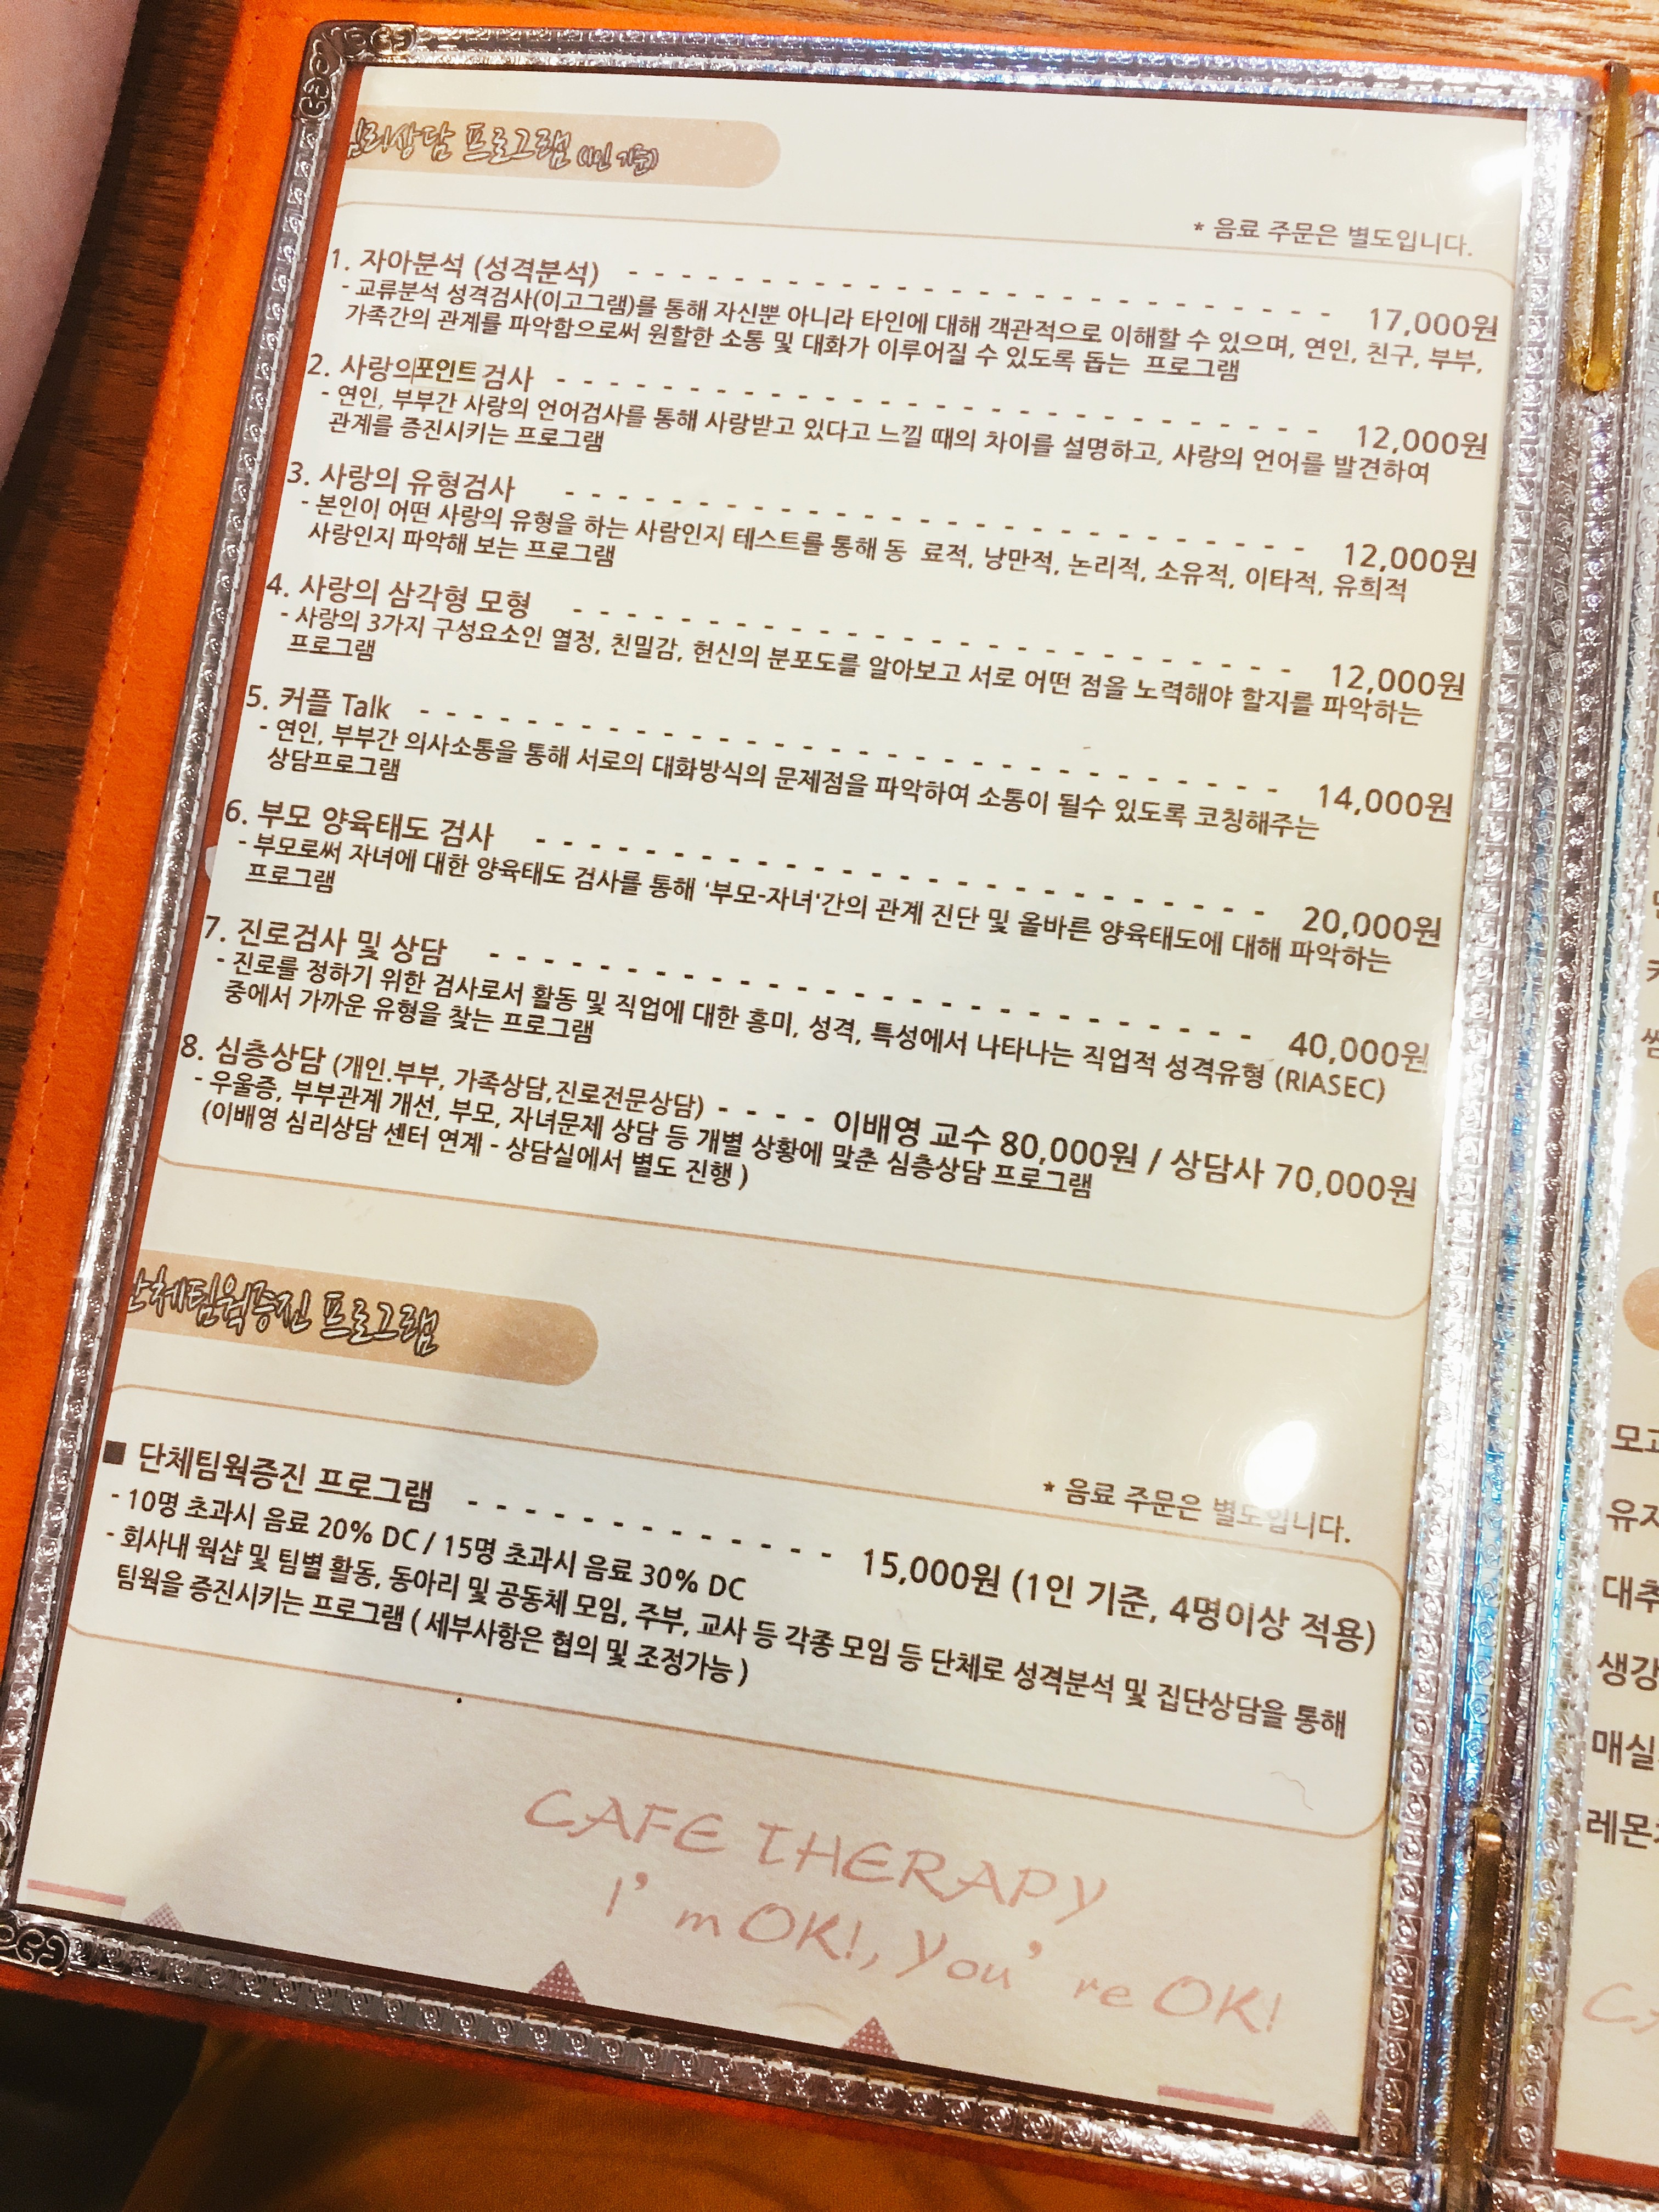 심리상담 프로그램 (1인 기준)
* 음료 주문은 별도입니다.
1. 자아분석 (성격분석) - - - - - - - - - - - - - - - - - - - - - - - - - - - 17,000원
- 교류분석 성격검사(이고그램)를 통해 자신뿐 아니라 타인에 대해 객관적으로 이해할 수 있으며, 연인, 친구, 부부,
가족간의 관계를 파악함으로써 원할한 소통 및 대화가 이루어질 수 있도록 돕는 프로그램
2. 사랑의포인트 검사 - - - - - - - - - - - - - - - - - - - - - - - - - - - - - 12,000원
- 연인, 부부간 사랑의 언어검사를 통해 사랑받고 있다고 느낄 때의 차이를 설명하고, 사랑의 언어를 발견하여
관계를 증진시키는 프로그램
3. 사랑의 유형검사 - - - - - - - - - - - - - - - - - - - - - - - - - - - - 12,000원
- 본인이 어떤 사랑의 유형을 하는 사람인지 테스트를 통해 동 료적, 낭만적, 논리적, 소유적, 이타적, 유희적
사랑인지 파악해 보는 프로그램
4. 사랑의 삼각형 모형 - - - - - - - - - - - - - - - - - - - - - - - - - - - 12,000원
- 사랑의 3가지 구성요소인 열정, 친밀감, 헌신의 분포도를 알아보고 서로 어떤 점을 노력해야 할지를 파악하는
프로그램
5. 커플 Talk - - - - - - - - - - - - - - - - - - - - - - - - - - - - - - - - 14,000원
- 연인, 부부간 의사소통을 통해 서로의 대화방식의 문제점을 파악하여 소통이 될수 있도록 코칭해주는
상담프로그램
6. 부모 양육태도 검사 - - - - - - - - - - - - - - - - - - - - - - - - - - - - 20,000원
- 부모로써 자녀에 대한 양육태도 검사를 통해 '부모-자녀'간의 관계 진단 및 올바른 양육태도에 대해 파악하는
프로그램
7. 진로검사 및 상담 - - - - - - - - - - - - - - - - - - - - - - - - - - - - - 40,000원
- 진로를 정하기 위한 검사로서 활동 및 직업에 대한 흥미, 성격, 특성에서 나타나는 직업적 성격유형 (RIASEC)
중에서 가까운 유형을 찾는 프로그램
8. 심층상담 (개인.부부, 가족상담,진로전문상담) - - - - 이배영 교수 80,000원 / 상담사 70,000원
- 우울증, 부부관계 개선, 부모, 자녀문제 상담 등 개별 상황에 맞춘 심층상담 프로그램
(이배영 심리상담 센터 연계 - 상담실에서 별도 진행 )
단체팀웍증진 프로그램
* 음료 주문은 별도입니다.
■ 단체팀웍증진 프로그램 - - - - - - - - - - - - - - 15,000원 (1인 기준, 4명이상 적용)
- 10명 초과시 음료 20% DC / 15명 초과시 음료 30% DC
- 회사내 웍샵 및 팀별 활동, 동아리 및 공동체 모임, 주부, 교사 등 각종 모임 등 단체로 성격분석 및 집단상담을 통해
팀웍을 증진시키는 프로그램 ( 세부사항은 협의 및 조정가능 )
CAFE THERAPY
I'm OK!, you're OK!